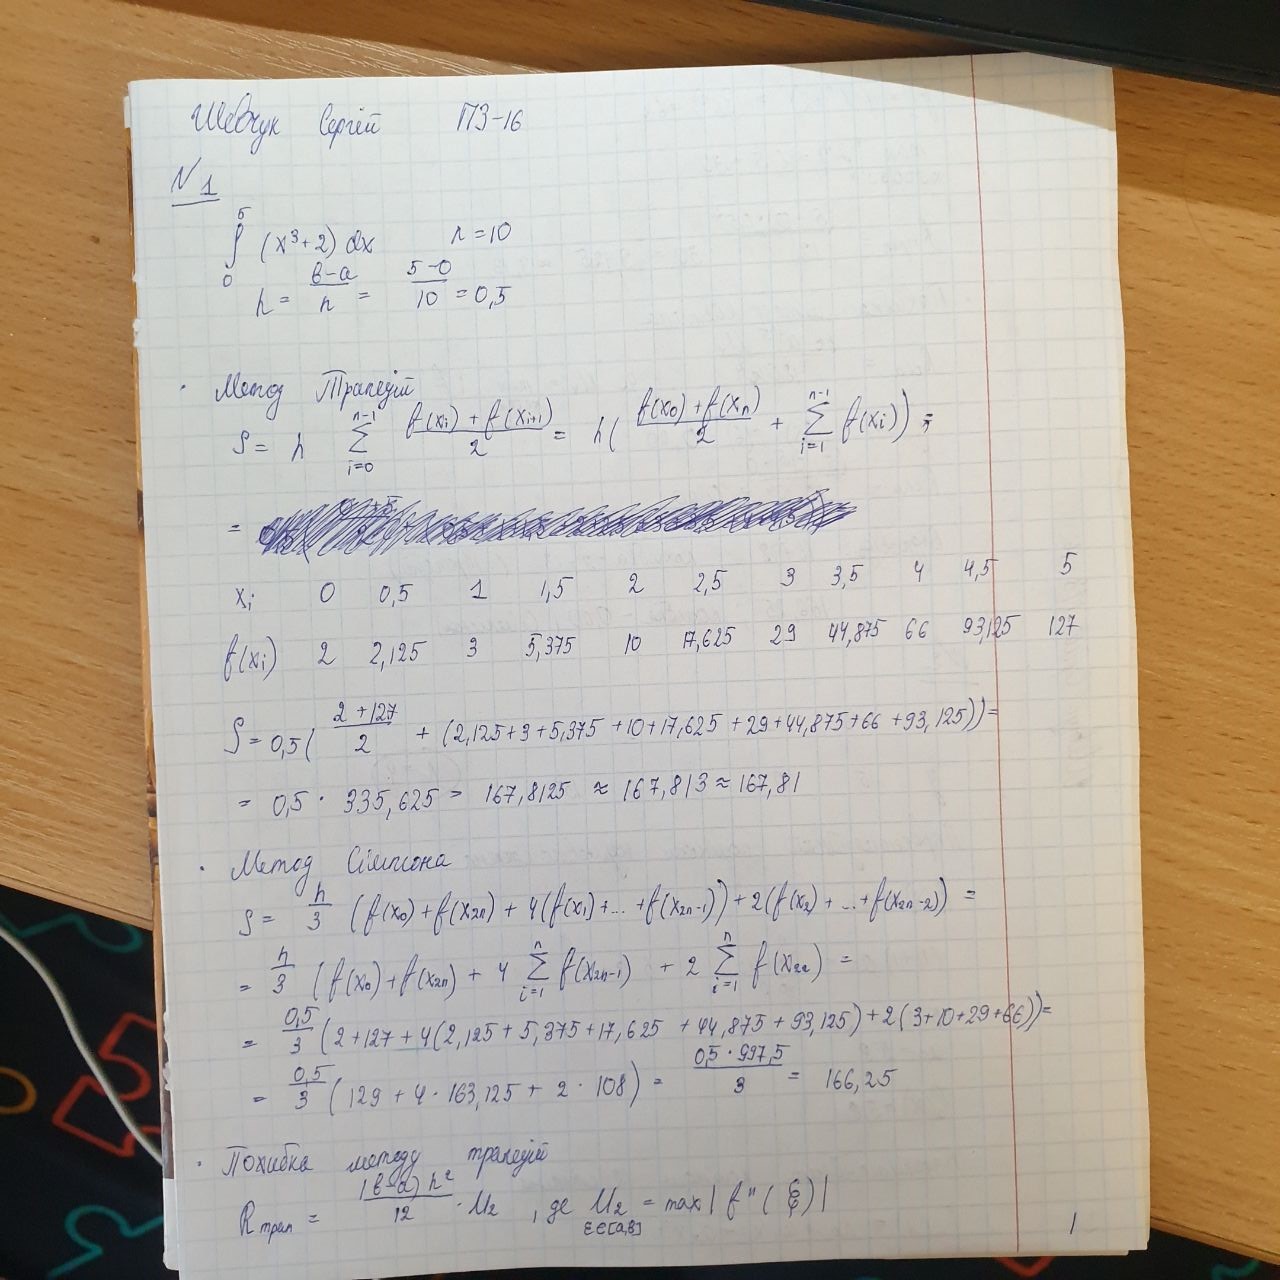 Шевчук Сергій ПЗ-16
№1
∫₀⁵ (x³+2) dx n=10
h = (b-a)/n = (5-0)/10 = 0,5
· Метод Трапецій
S = h ∑_{i=0}^{n-1} (f(xᵢ)+f(xᵢ₊₁))/2 = h( (f(x₀)+f(xₙ))/2 + ∑_{i=1}^{n-1} f(xᵢ)) =
=
xᵢ 0 0,5 1 1,5 2 2,5 3 3,5 4 4,5 5
f(xᵢ) 2 2,125 3 5,375 10 17,625 29 44,875 66 93,125 127
S = 0,5( (2+127)/2 + (2,125+3+5,375+10+17,625+29+44,875+66+93,125))=
= 0,5 · 335,625 = 167,8125 ≈ 167,813 ≈ 167,81
· Метод Сімпсона
S = h/3 (f(x₀)+f(x₂ₙ)+4(f(x₁)+...+f(x₂ₙ₋₁))+2(f(x₂)+...+f(x₂ₙ₋₂)) =
= h/3 (f(x₀)+f(x₂ₙ)+4 ∑_{i=1}^{n} f(x₂ₙ₋₁) + 2 ∑_{i=1}^{n} f(x₂ᵢ) =
= 0,5/3 (2+127+4(2,125+5,375+17,625+44,875+93,125)+2(3+10+29+66))=
= 0,5/3 (129+4·163,125+2·108) = (0,5·997,5)/3 = 166,25
· Похибка методу трапецій
R трап = (|b-a|h²)/12 · M₂ , де M₂ = max_{ξ∈[a,b]} | f''(ξ)|
1